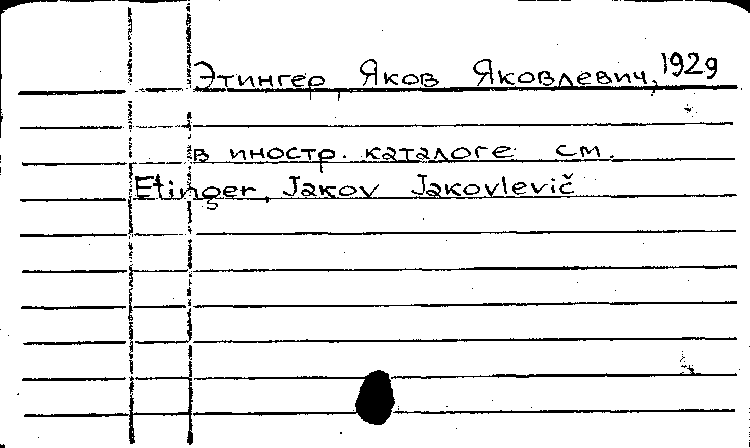 Этингер, Яков Яковлевич, 1929
в иностр. каталоге см.
Etinger, Jakov Jakovlevič